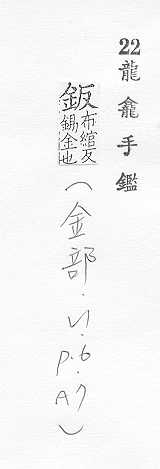 22龍龕手鑑
鈑布綰反
錫金也
(金部.VI.p.6.A7)